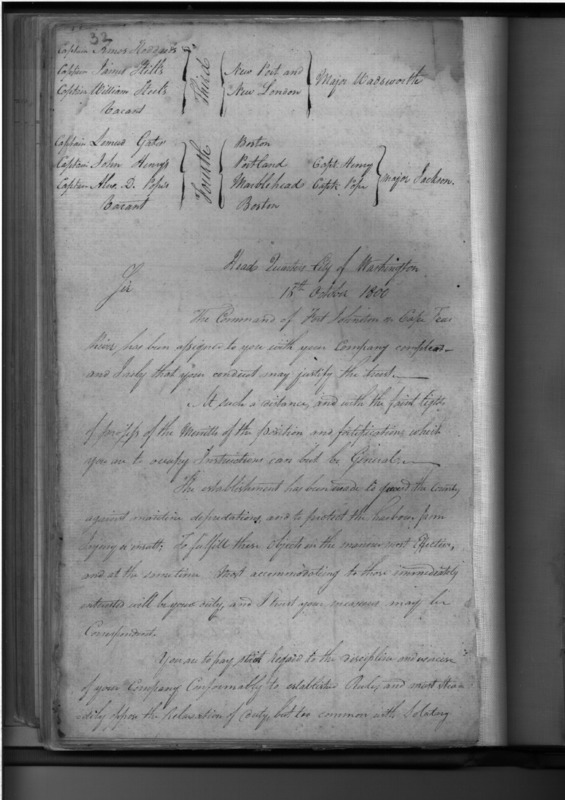 32
Captain Amos Stoddard
Captain James Stille
Captain William Steele
Vacant
Third
New Port and
New London
Major Wadsworth
Captain Lemuel Gates
Captain John Henry
Captain Alex. D. Pope
Vacant
Fourth
Boston
Portland Capt. Henry
Marblehead Capt. Pope
Boston
Major Jackson.
Head Quarters City of Washington
15th October 1800
Sir
The Command of Fort Johnston on Cape Fear
River, has been assigned to you with your Company compleat
and I rely that your conduct may justify the trust.
At such a distance, and with the faint lights
I possess of the Minutle of the position and fortifications which
you are to occupy Instructions can but be General.
The establishment has been made to guard the County
against maritime depredations, and to protect the harbour from
injury or insult; To fulfill these objects in the manner most Effective,
and at the same time most accommodating to those immediately
interested will be your duty, and I trust your measures may be
Correspondent.
You are to pay strict Regard to the discipline and service
of your Company Conformably to established Rules, and most stea=
dily oppose the Relaxation of duty, but too common with Solitary